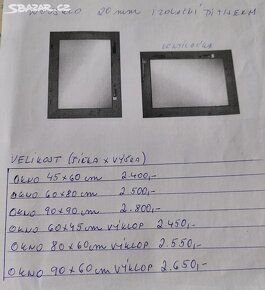 SBAZAR.CZ
20 mm IZOLAČNÍ DITHERM
VENTILAČKA
VELIKOST (ŠÍŘKA x VÝŠKA)
OKNO 45x60 cm 2.400,-
OKNO 60x80 cm 2.500,-
OKNO 90x90 cm 2.800,-
OKNO 60x45 cm VÝKLOP 2.450,-
OKNO 80x60 cm VÝKLOP 2.550,-
OKNO 90x60 cm VÝKLOP 2.650,-